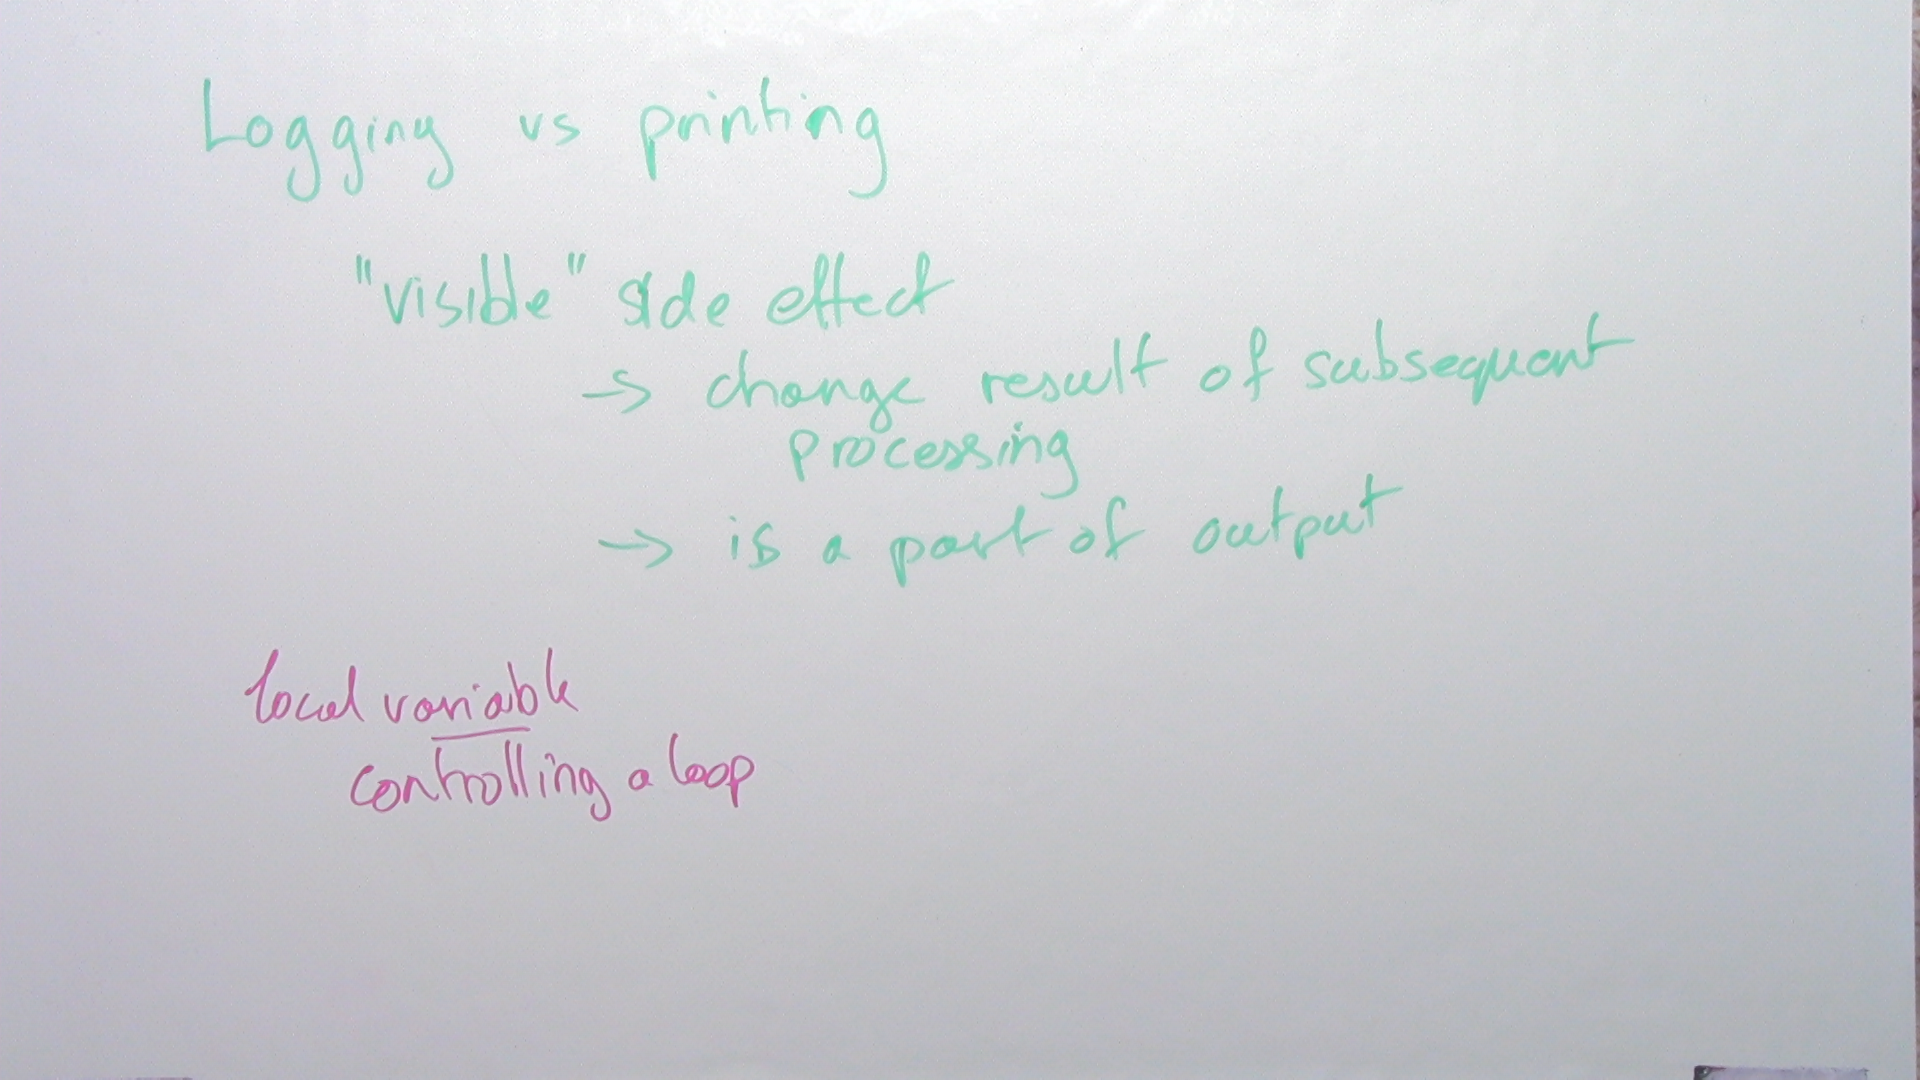 Logging vs printing
"visible" side effect
→ change result of subsequent
processing
→ is a part of output
local variable
controlling a loop